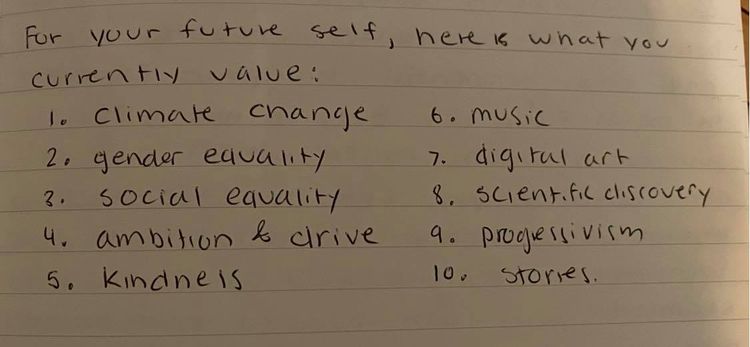 For your future self, here is what you
currently value:
1. climate change
2. gender equality
3. social equality
4. ambition & drive
5. kindness
6. music
7. digital art
8. scientific discovery
9. progressivism
10. stories.